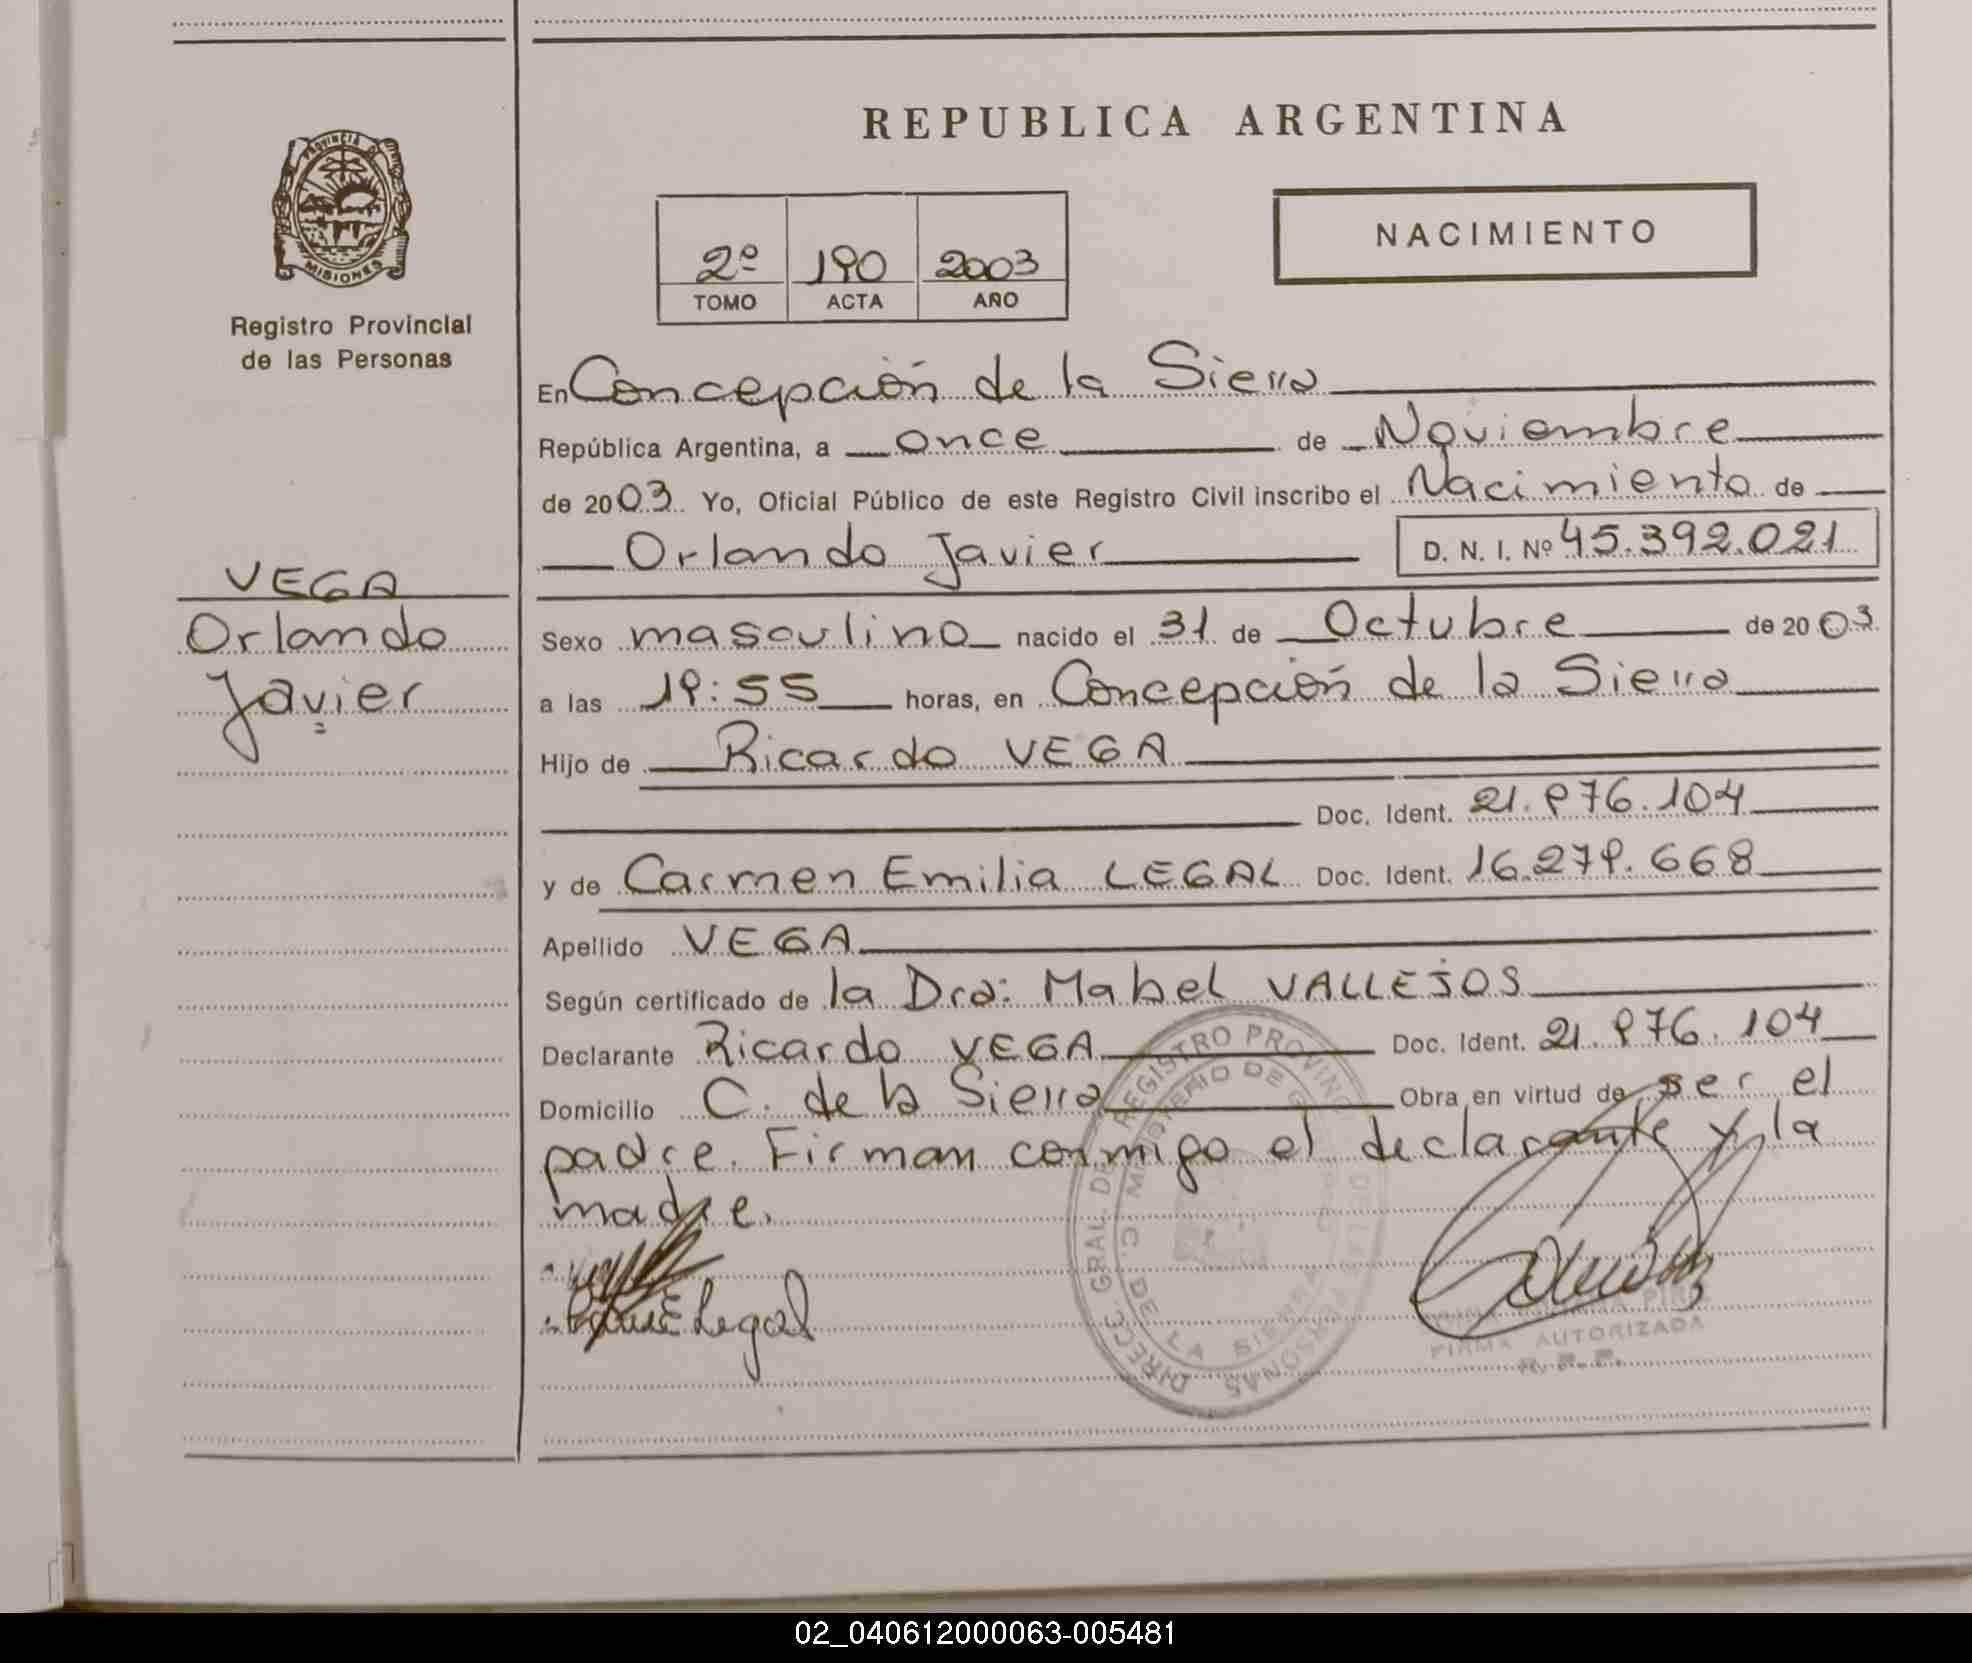 PROVINCIA DE
MISIONES
Registro Provincial
de las Personas
VEGA
Orlando
Javier
REPUBLICA ARGENTINA
2º 190 2003
TOMO ACTA AÑO
NACIMIENTO
En Concepción de la Sierra
República Argentina, a once de Noviembre
de 2003 Yo, Oficial Público de este Registro Civil inscribo el Nacimiento de
Orlando Javier D. N. I. Nº 45.392.021
Sexo masculino nacido el 31 de Octubre de 2003
a las 19:55 horas, en Concepción de la Sierra
Hijo de Ricardo VEGA
Doc. Ident. 21.976.104
y de Carmen Emilia LEGAL Doc. Ident. 16.279.668
Apellido VEGA
Según certificado de la Dra: Mabel VALLEJOS
Declarante Ricardo VEGA Doc. Ident. 21.976.104
Domicilio C. de la Sierra Obra en virtud de ser el
padre. Firman conmigo el declarante y la
madre.
Legal
DIRECC. GRAL. DE REGISTRO PROVINC DE LAS PERSONAS
C. DE LA SIERRA
FIRMA AUTORIZADA
R. P. P.
02_040612000063-005481